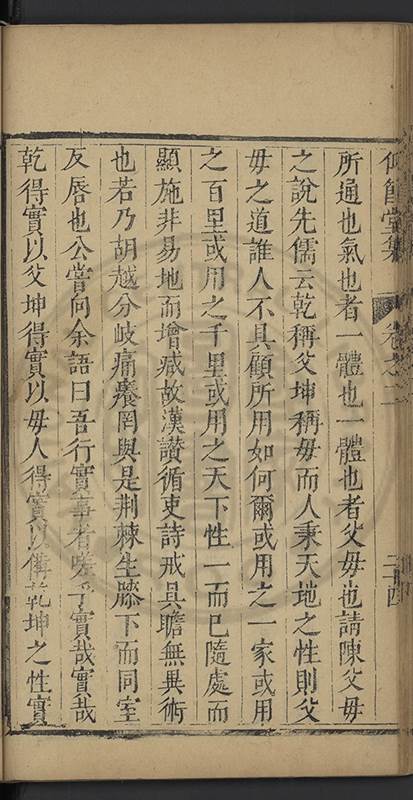 仰節堂集 卷之二 二十四
所通也氣也者一體也一體也者父毋也請陳父毋
之說先儒云乾稱父坤稱毋而人秉天地之性則父
毋之道誰人不具顧所用如何爾或用之一家或用
之百里或用之千里或用之天下性一而已隨處而
顯施非易地而增臧故漢讃循吏詩戒具瞻無異術
也若乃胡越分岐痛癢罔與是荆棘生膝下而同室
反唇也公嘗向余語曰吾行實事者嗟乎實哉實哉
乾得實以父坤得實以毋人得實以備乾坤之性實